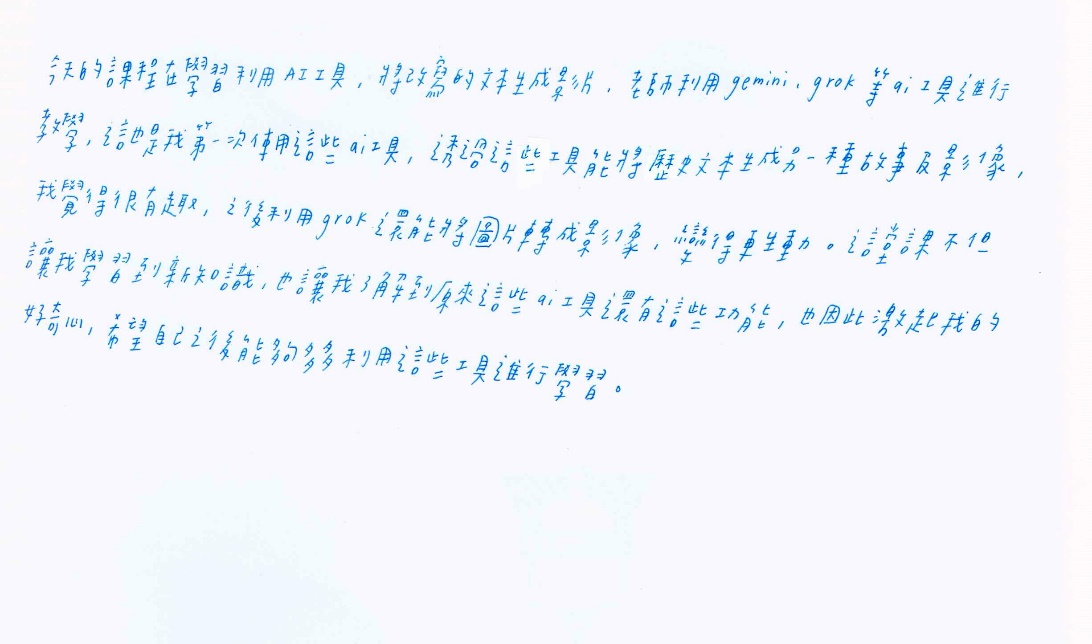 今天的課程在學習利用AI工具，將改寫的文本生成影片，老師利用gemini、grok等ai工具進行
教學，這也是我第一次使用這些ai工具，透過這些工具能將歷史文本生成另一種故事及影像，
我覺得很有趣，之後利用grok還能將圖片轉成影像，變得更生動。這堂課不但
讓我學習到新知識，也讓我了解到原來這些ai工具還有這些功能，也因此激起我的
好奇心，希望自己之後能夠多多利用這些工具進行學習。